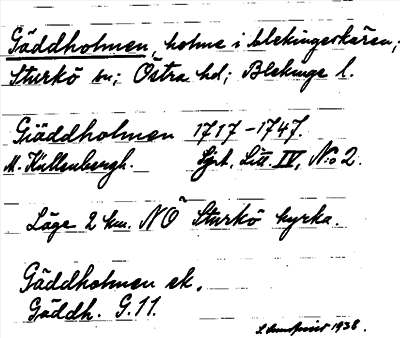 Gäddholmen, holme i blekingeskären;
Sturkö sn; Östra hd; Blekinge l.
Giäddholmen 1717-1747.
M. Kullenbergh. Sjrt. Litt. IV, N:o 2.
Läge 2 km. NÖ Sturkö kyrka.
Gäddholmen ek.
Gäddh. G.11.
1938.